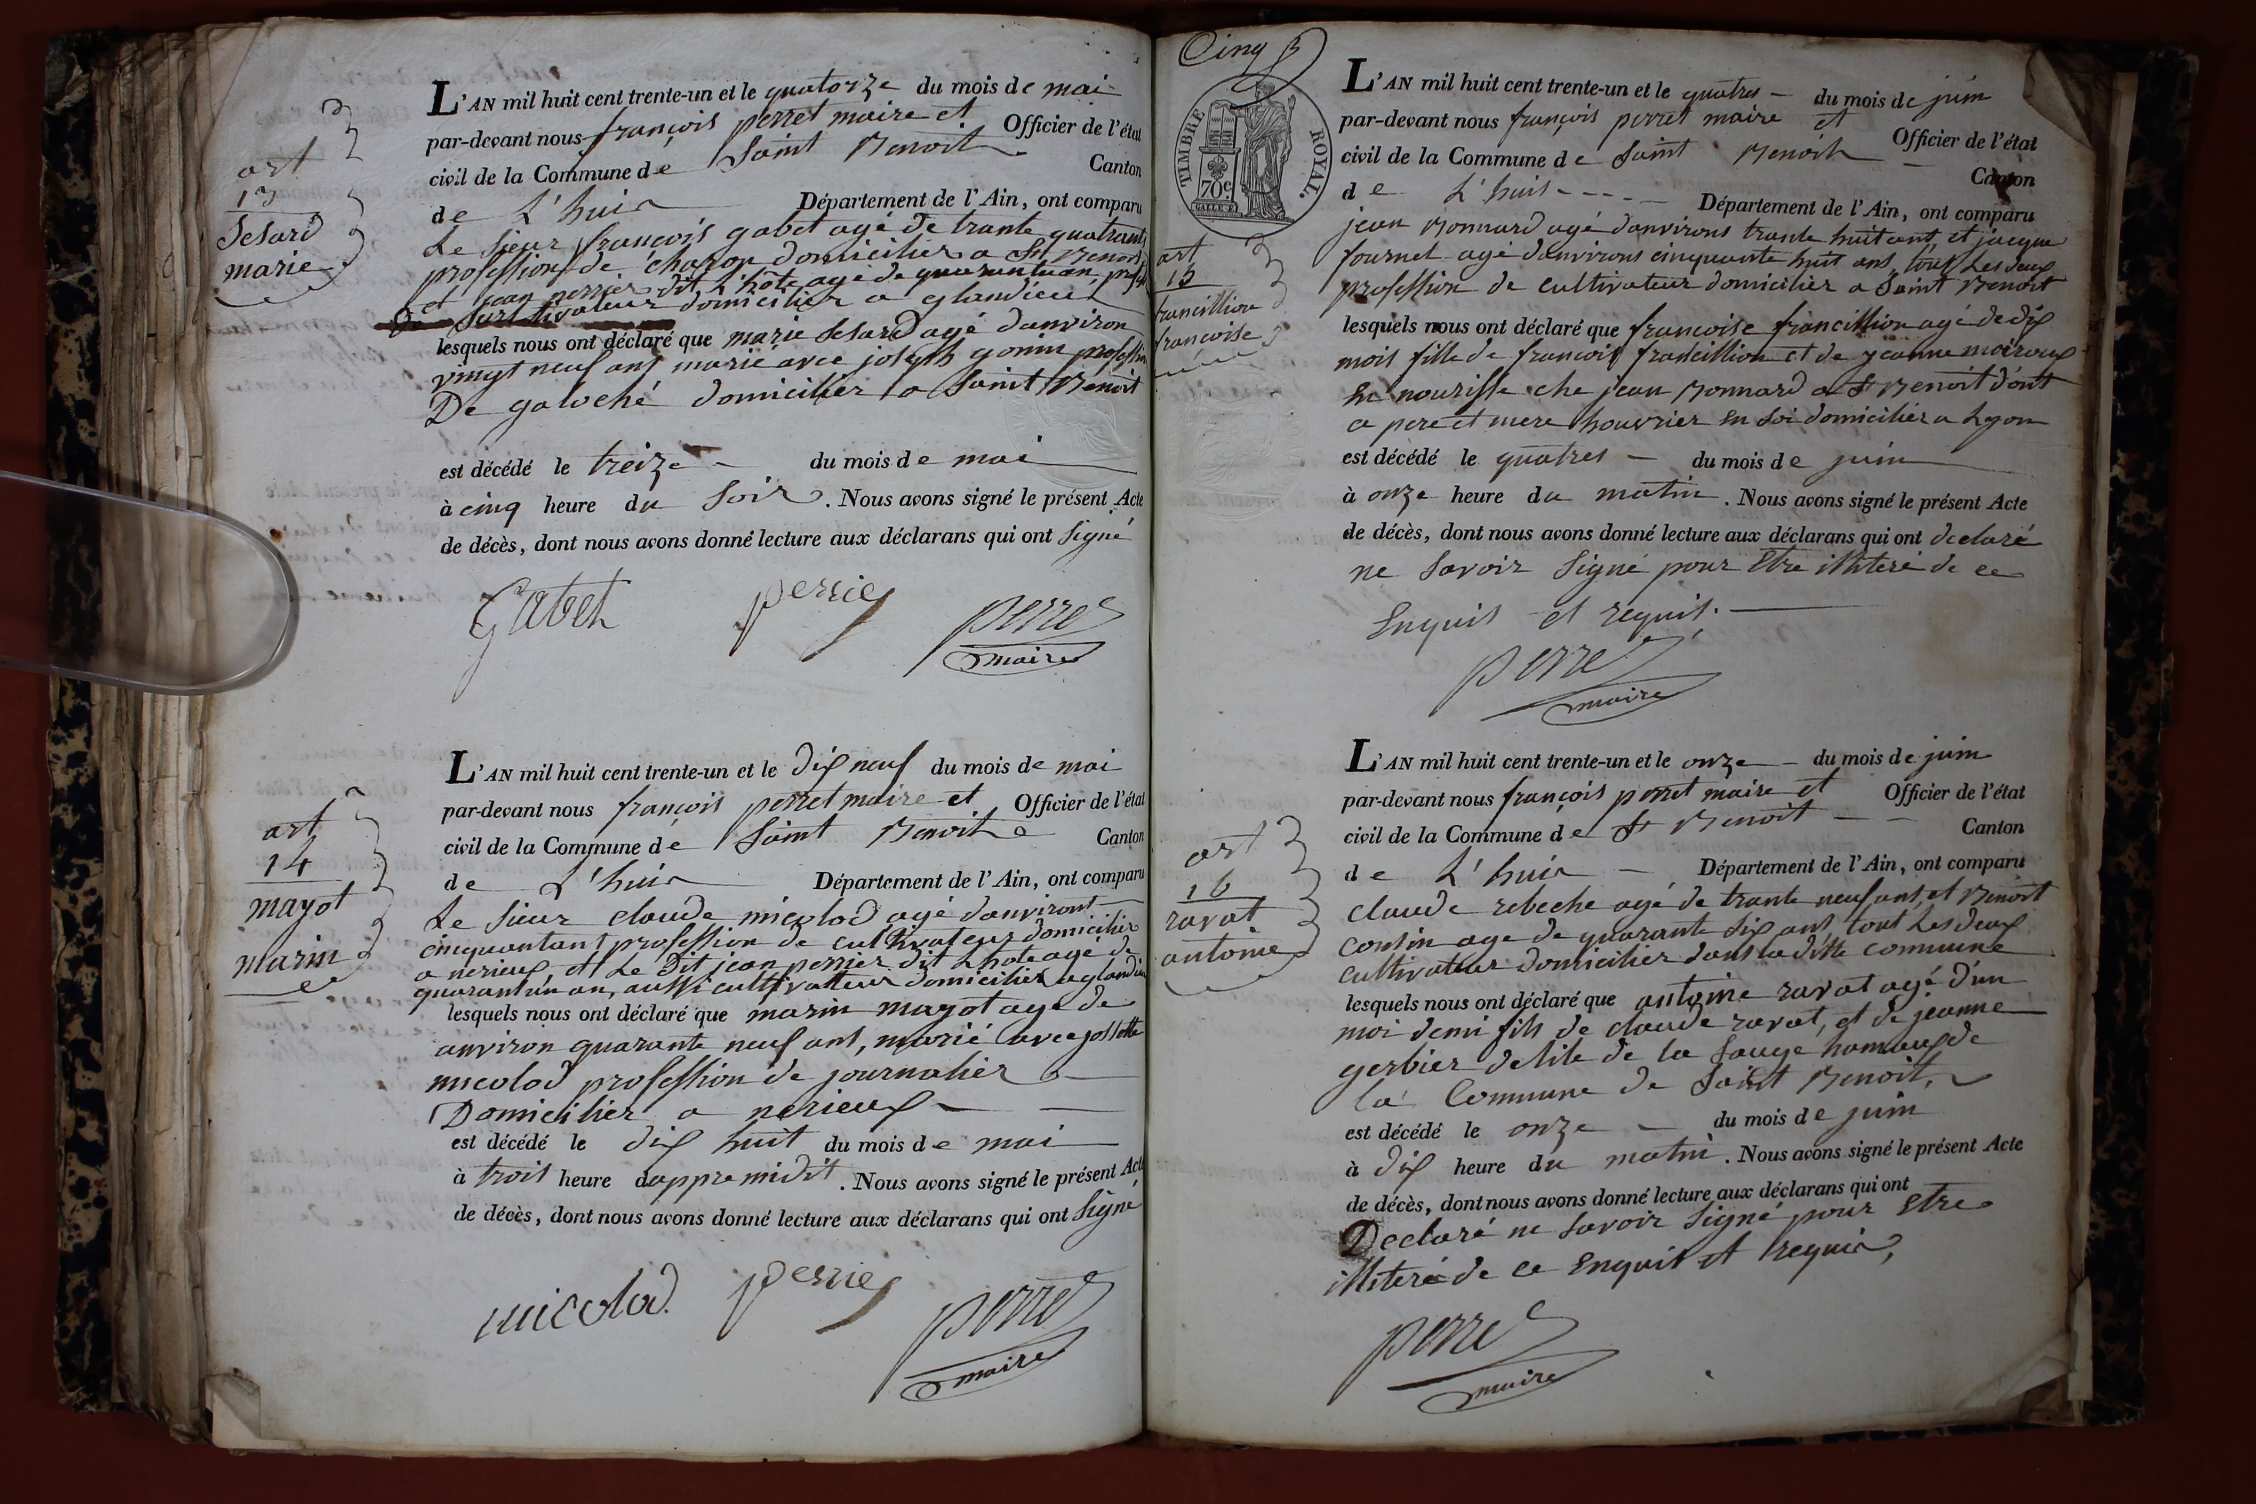 art
13
Sesard
marie
L'AN mil huit cent trente-un et le quatorze du mois de mai
par-devant nous françois perret maire et Officier de l'état
civil de la Commune de Saint Benoit Canton
de L'huis Département de l'Ain, ont comparu
Le sieur françois gabet agé de trante quatre ans
profession de charon domicilier a St Benoit
et jean perrier dit L'hôte agé de quarantuan
cultivateur domicilier a glandieu
lesquels nous ont déclaré que marie Sesard agé danviron
vingt neuf ans marié avec joseph gonin profession
De galoché domicilier a Saint Benoit
est décédé le treize du mois de mai
à cinq heure du Soir. Nous avons signé le présent Acte
de décès, dont nous avons donné lecture aux déclarans qui ont Signé
Gabet perrier perret
maire
art
14
mayot
marin
L'AN mil huit cent trente-un et le dix neuf du mois de mai
par-devant nous françois perret maire et Officier de l'état
civil de la Commune de Saint Benoit Canton
de L'huis Département de l'Ain, ont comparu
Le sieur claude micolod agé danviront
cinquantant profession de cultivateur domicilier
a nerieux, et Le Dit jean perrier dit Lhote agé de
quarantun an, aussi cultivatteur domicilier a glandieu
lesquels nous ont déclaré que marin mayot agé de
anviron quarante neuf ant, marié avec jossette
micolod profession de journalier
Domicilier a nerieux
est décédé le dix huit du mois de mai
à troit heure dappremidit. Nous avons signé le présent Acte
de décès, dont nous avons donné lecture aux déclarans qui ont Signé
micolod. perrier perret
maire
Cinq
TIMBRE ROYAL.
70c
art
15
francillion
francoise
L'AN mil huit cent trente-un et le quatres du mois de juin
par-devant nous françois perret maire et Officier de l'état
civil de la Commune de Saint Benoit Canton
de L'huis Département de l'Ain, ont comparu
jean Bonnard agé danvirons trante huit ant, et jacque
fournet agé danvirons cinquante huit ans, tout Les deux
profession de cultivateur domicilier a Saint Benoit
lesquels nous ont déclaré que francoise francillion agé de dix
mois fille de francois francillion et de jeanne moiroux
En nourisse che jean Bonnard a St Benoit d'ont
a pere et mere houvrier en Soi domicilier a Lyon
est décédé le quatres du mois de juin
à onze heure du matin. Nous avons signé le présent Acte
de décès, dont nous avons donné lecture aux déclarans qui ont declaré
ne Savoir Signé pour Etre illiteré de ce
Enquis et requit.
perret
maire
art
16
ravat
antoine
L'AN mil huit cent trente-un et le onze du mois de juin
par-devant nous françois perret maire et Officier de l'état
civil de la Commune de St Benoit Canton
de L'huis Département de l'Ain, ont comparu
Claude rebeche agé de trante neuf ant, et Benoit
cousin age de quarante six ant, tout Les deux
cultivateur domicilier dans la ditte commune
lesquels nous ont déclaré que antoine ravat agé d'un
moi demi fils de claude ravat, et de jeanne
gerbier de lile de la Sauge hamaux de
la Commune de Saint Benoit,
est décédé le onze du mois de juin
à dix heure du matin. Nous avons signé le présent Acte
de décès, dont nous avons donné lecture aux déclarans qui ont
Declaré ne Savoir Signé pour Etre
illiteré de ce Enquit et requis,
perret
maire